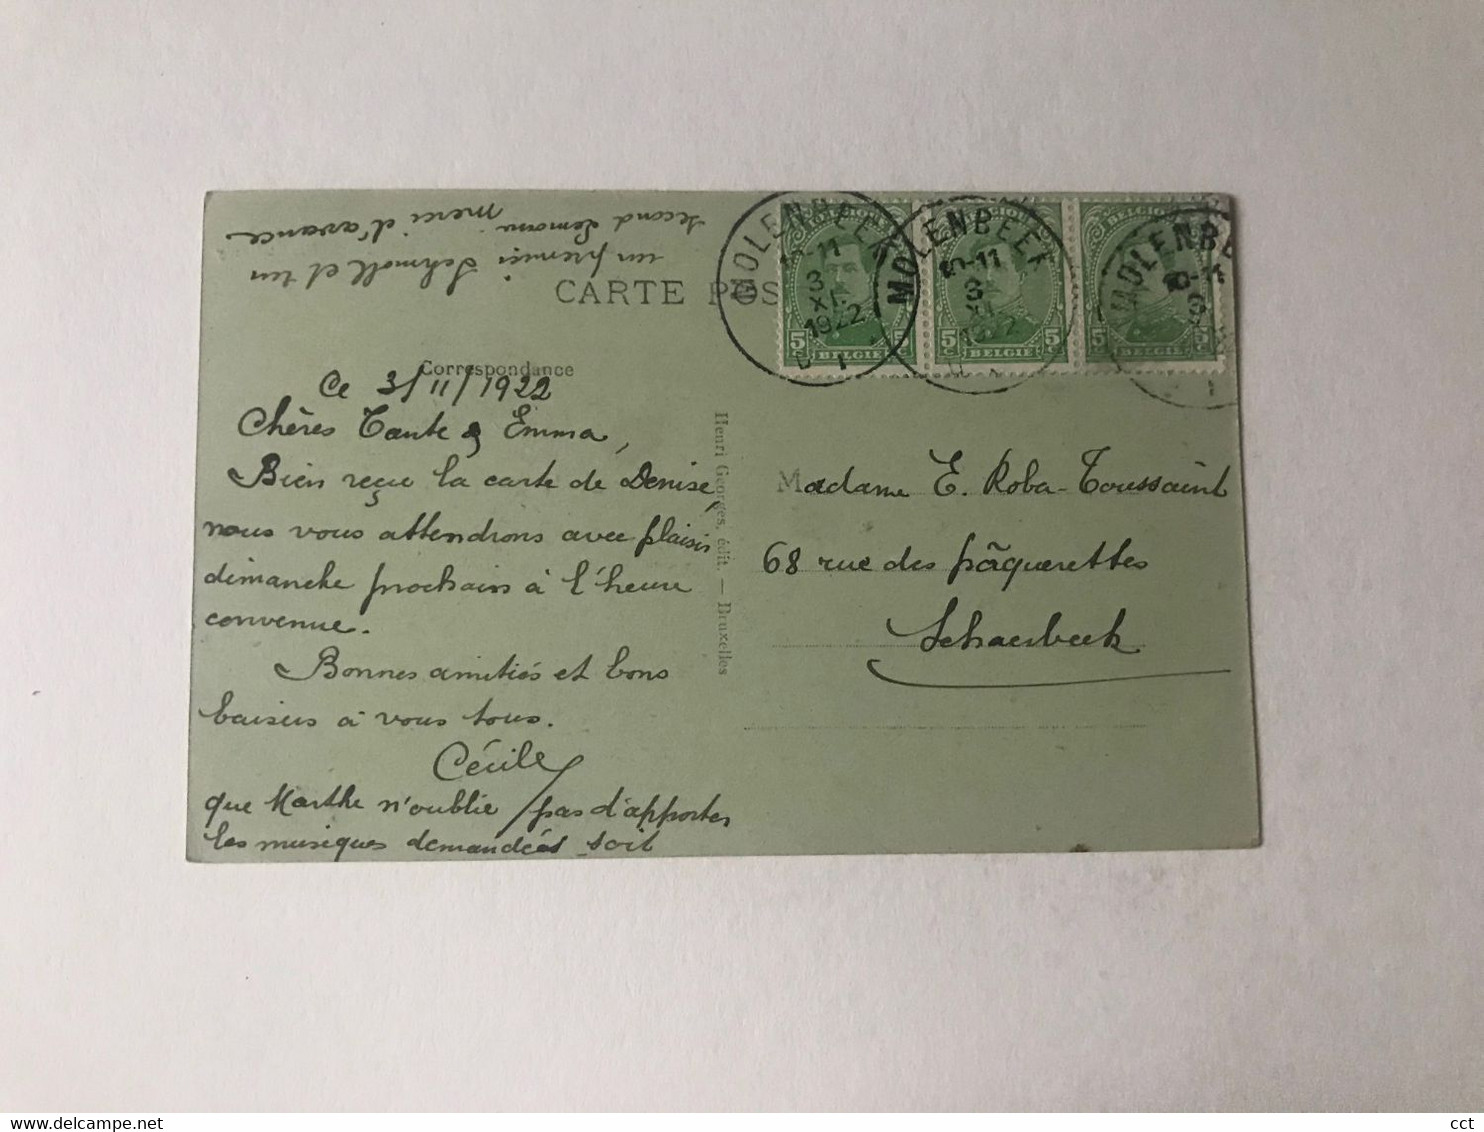 CARTE POS
Correspondance
Ce 3/11/1922
Chères Tante & Emma,
Bien reçu la carte de Denise,
nous vous attendrons avec plaisir
dimanche prochain à l'heure
convenue.
Bonnes amitiés et bons
baisers à vous tous.
Cécile
que Marthe n'oublie pas d'apporter
les musiques demandées soit
un premier Schmoll et un
second Lemoni merci d'avance
Henri Georges, édit. — Bruxelles
MOLENBEEK
10-11
3
XI
1922
1
MOLENBEEK
10-11
3
XI
1922
MOLENBE
10-11
3
1
5c BELGIE
5c BELGIE 5c
BELGIQUE
5 BELGIE 5c
Madame E. Roba-Toussaint
68 rue des pâquerettes
Schaerbeek
cct